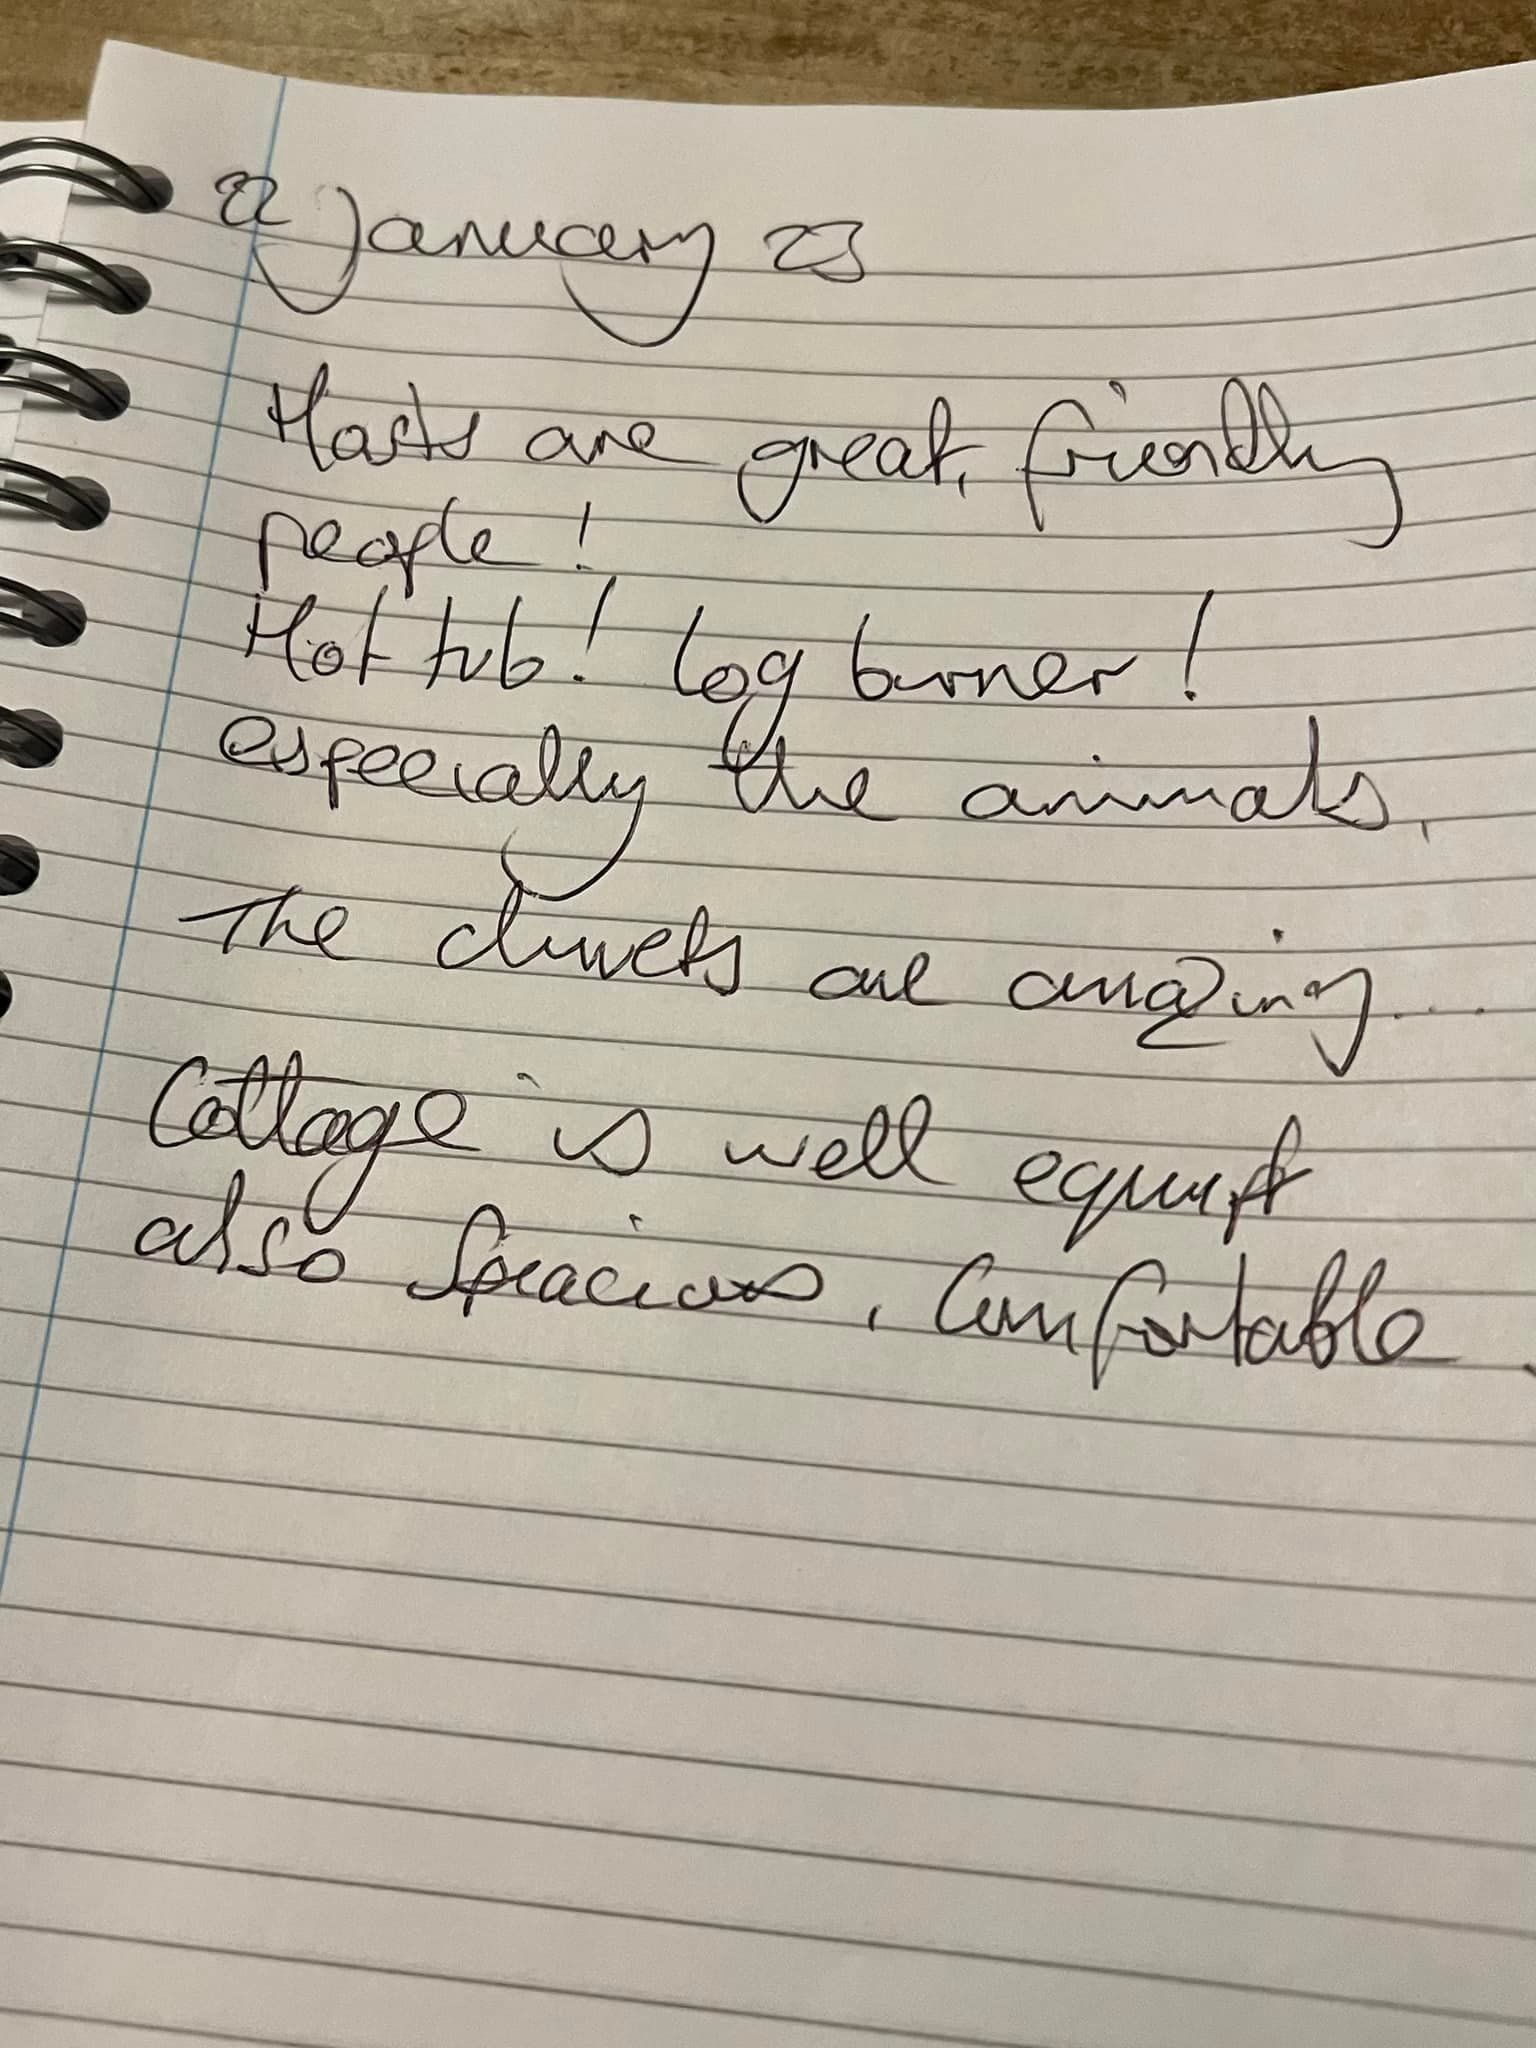 22 January 23
Hosts are great, friendly
people!
Hot tub! Log burner!
especially the animals,
The duvets are amazing...
Cottage is well equipt
also Spacious, Comfortable,